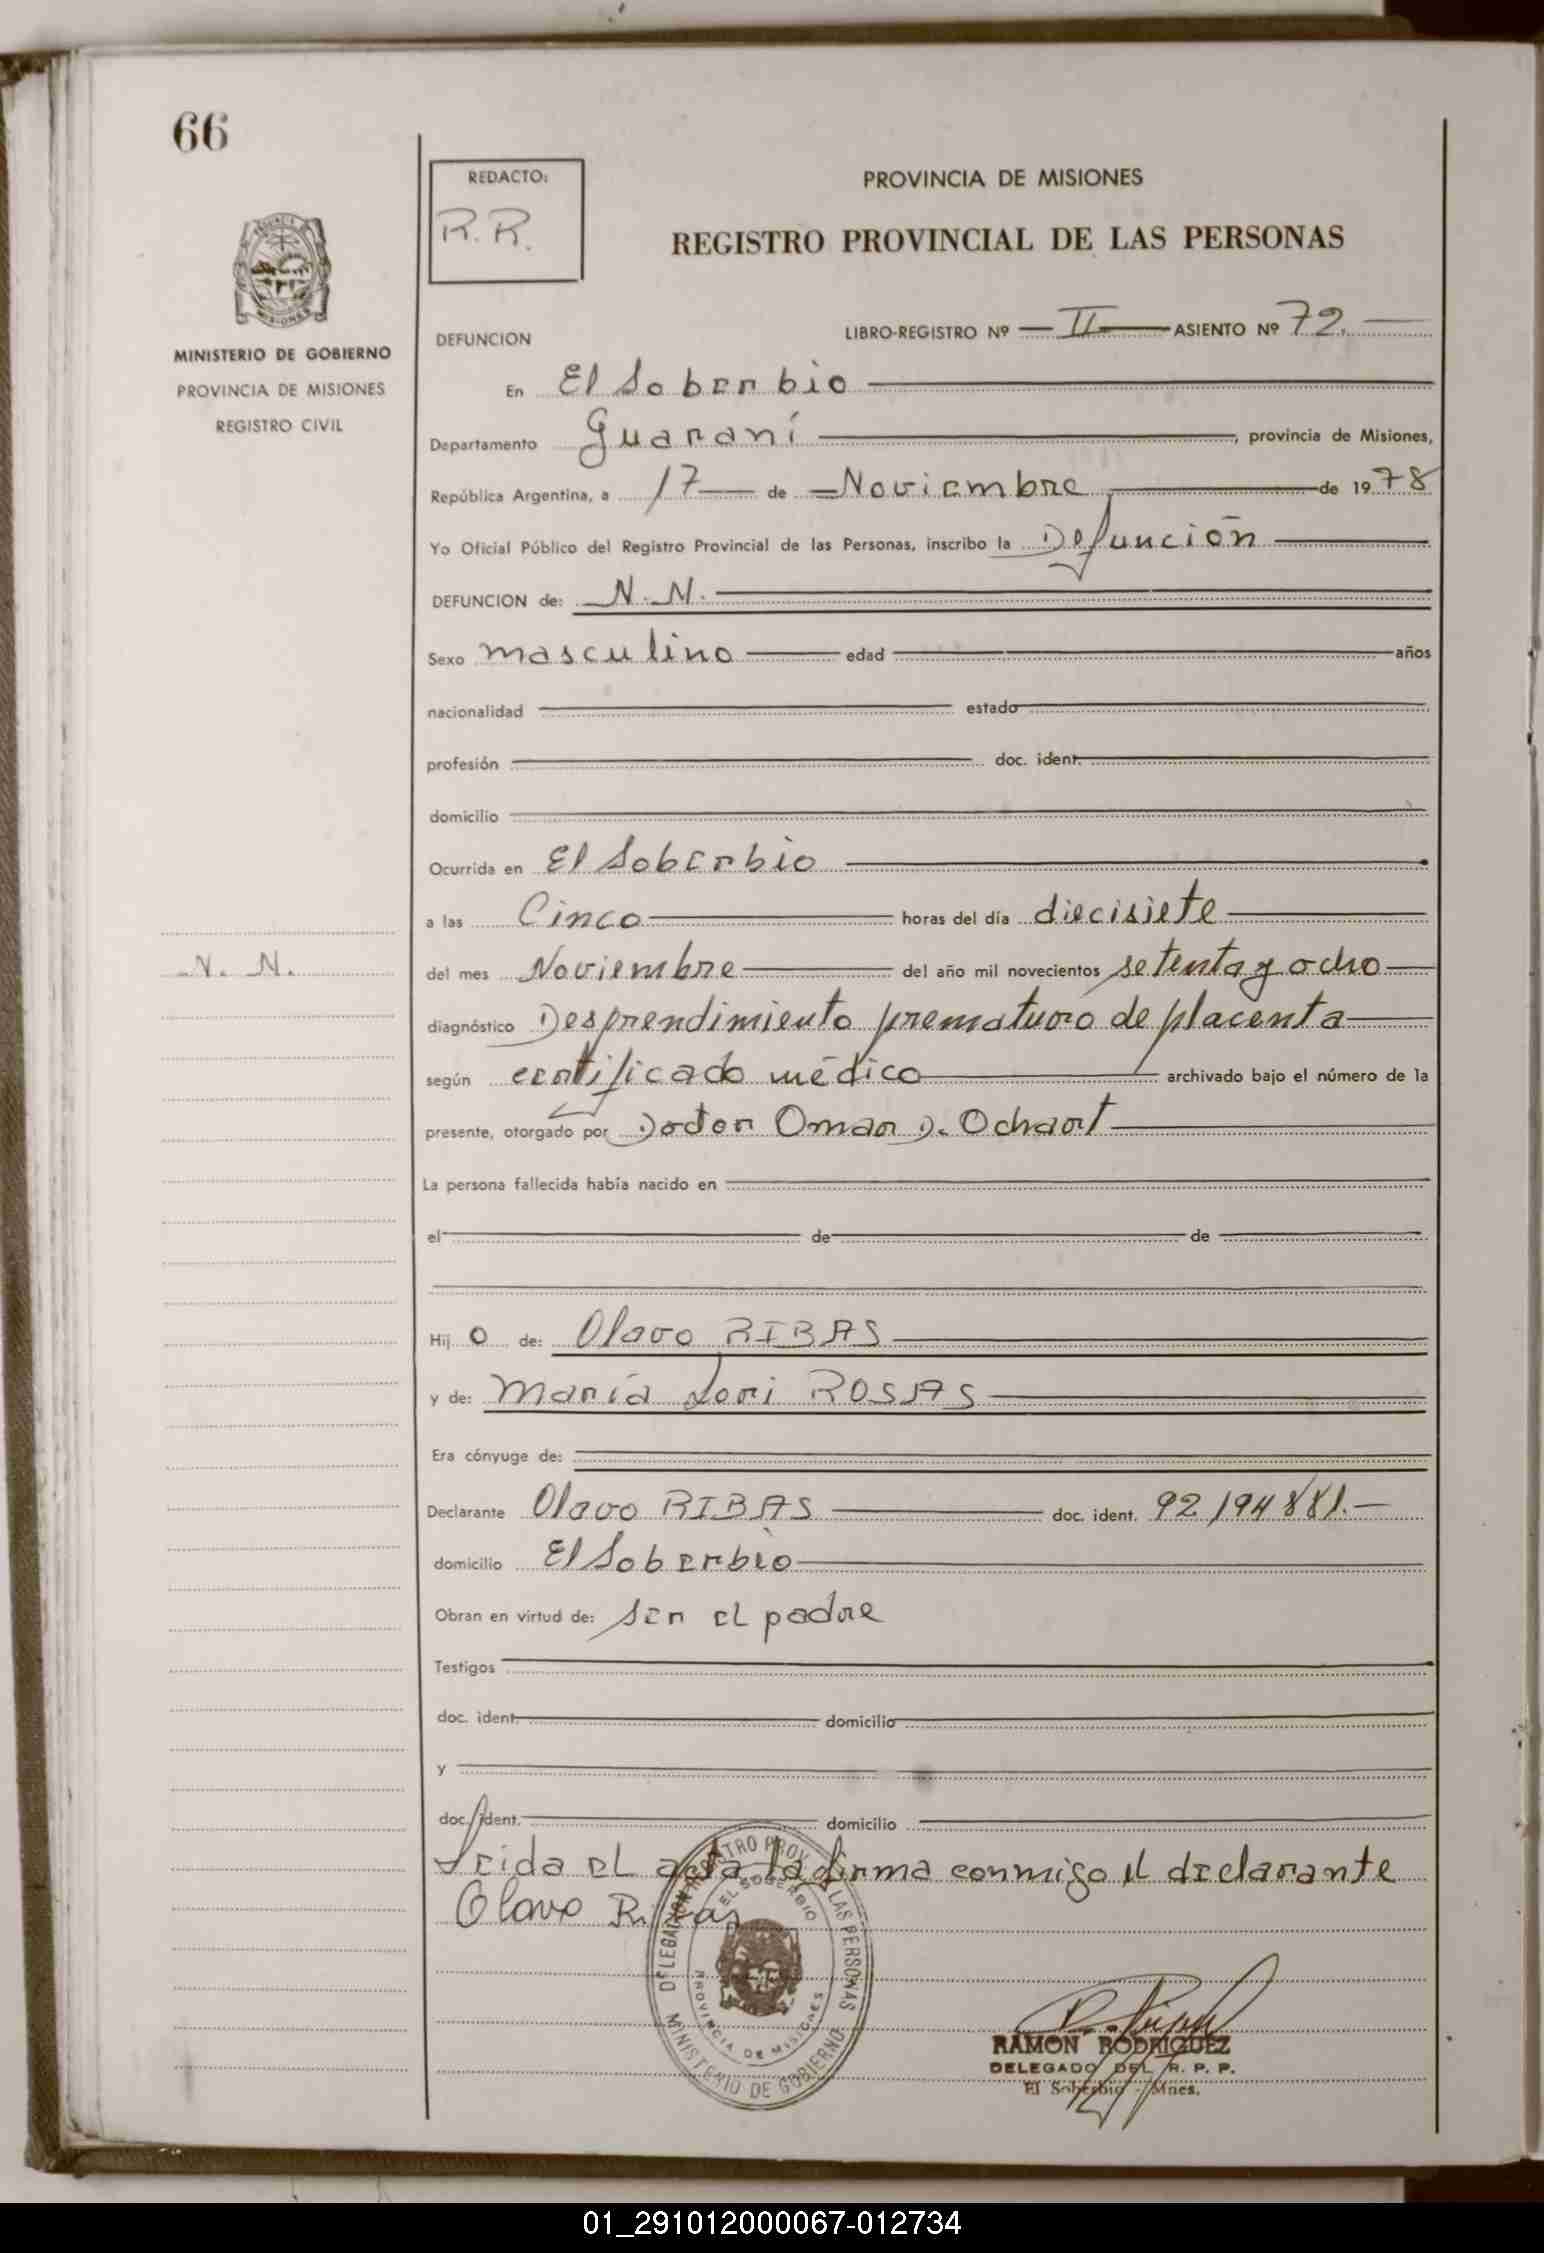 66
REDACTO:
R.R.
PROVINCIA DE MISIONES
REGISTRO PROVINCIAL DE LAS PERSONAS
MINISTERIO DE GOBIERNO
PROVINCIA DE MISIONES
REGISTRO CIVIL
DEFUNCION
LIBRO-REGISTRO Nº II ASIENTO Nº 72.
En El Soberbio
Departamento Guaraní, provincia de Misiones,
República Argentina, a 17 de Noviembre de 1978
Yo Oficial Público del Registro Provincial de las Personas, inscribo la Defunción
DEFUNCION de: N.N.
Sexo masculino edad años
nacionalidad estado
profesión doc. ident.
domicilio
Ocurrida en El Soberbio
a las Cinco horas del día diecisiete
N. N.
del mes Noviembre del año mil novecientos setenta y ocho
diagnóstico Desprendimiento prematuro de placenta
según certificado médico archivado bajo el número de la
presente, otorgado por Doctor Omar D. Ochart
La persona fallecida había nacido en
el de de
Hij o de: Olavo RIBAS
y de: María Lori ROSAS
Era cónyuge de:
Declarante Olavo RIBAS doc. ident. 92194881.-
domicilio El Soberbio
Obran en virtud de: ser el padre
Testigos
doc. ident. domicilio
y
doc. ident. domicilio
Leida el acta la firma conmigo el declarante
Olavo Ribas
DELEGACION REGISTRO PROV. DE LAS PERSONAS
EL SOBERBIO
PROVINCIA DE MISIONES
MINISTERIO DE GOBIERNO
RAMON RODRIGUEZ
DELEGADO DEL R. P. P.
El Soberbio - Mnes.
01_291012000067-012734